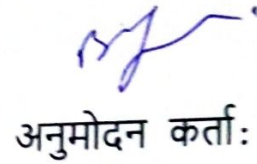 अनुमोदन कर्ता: